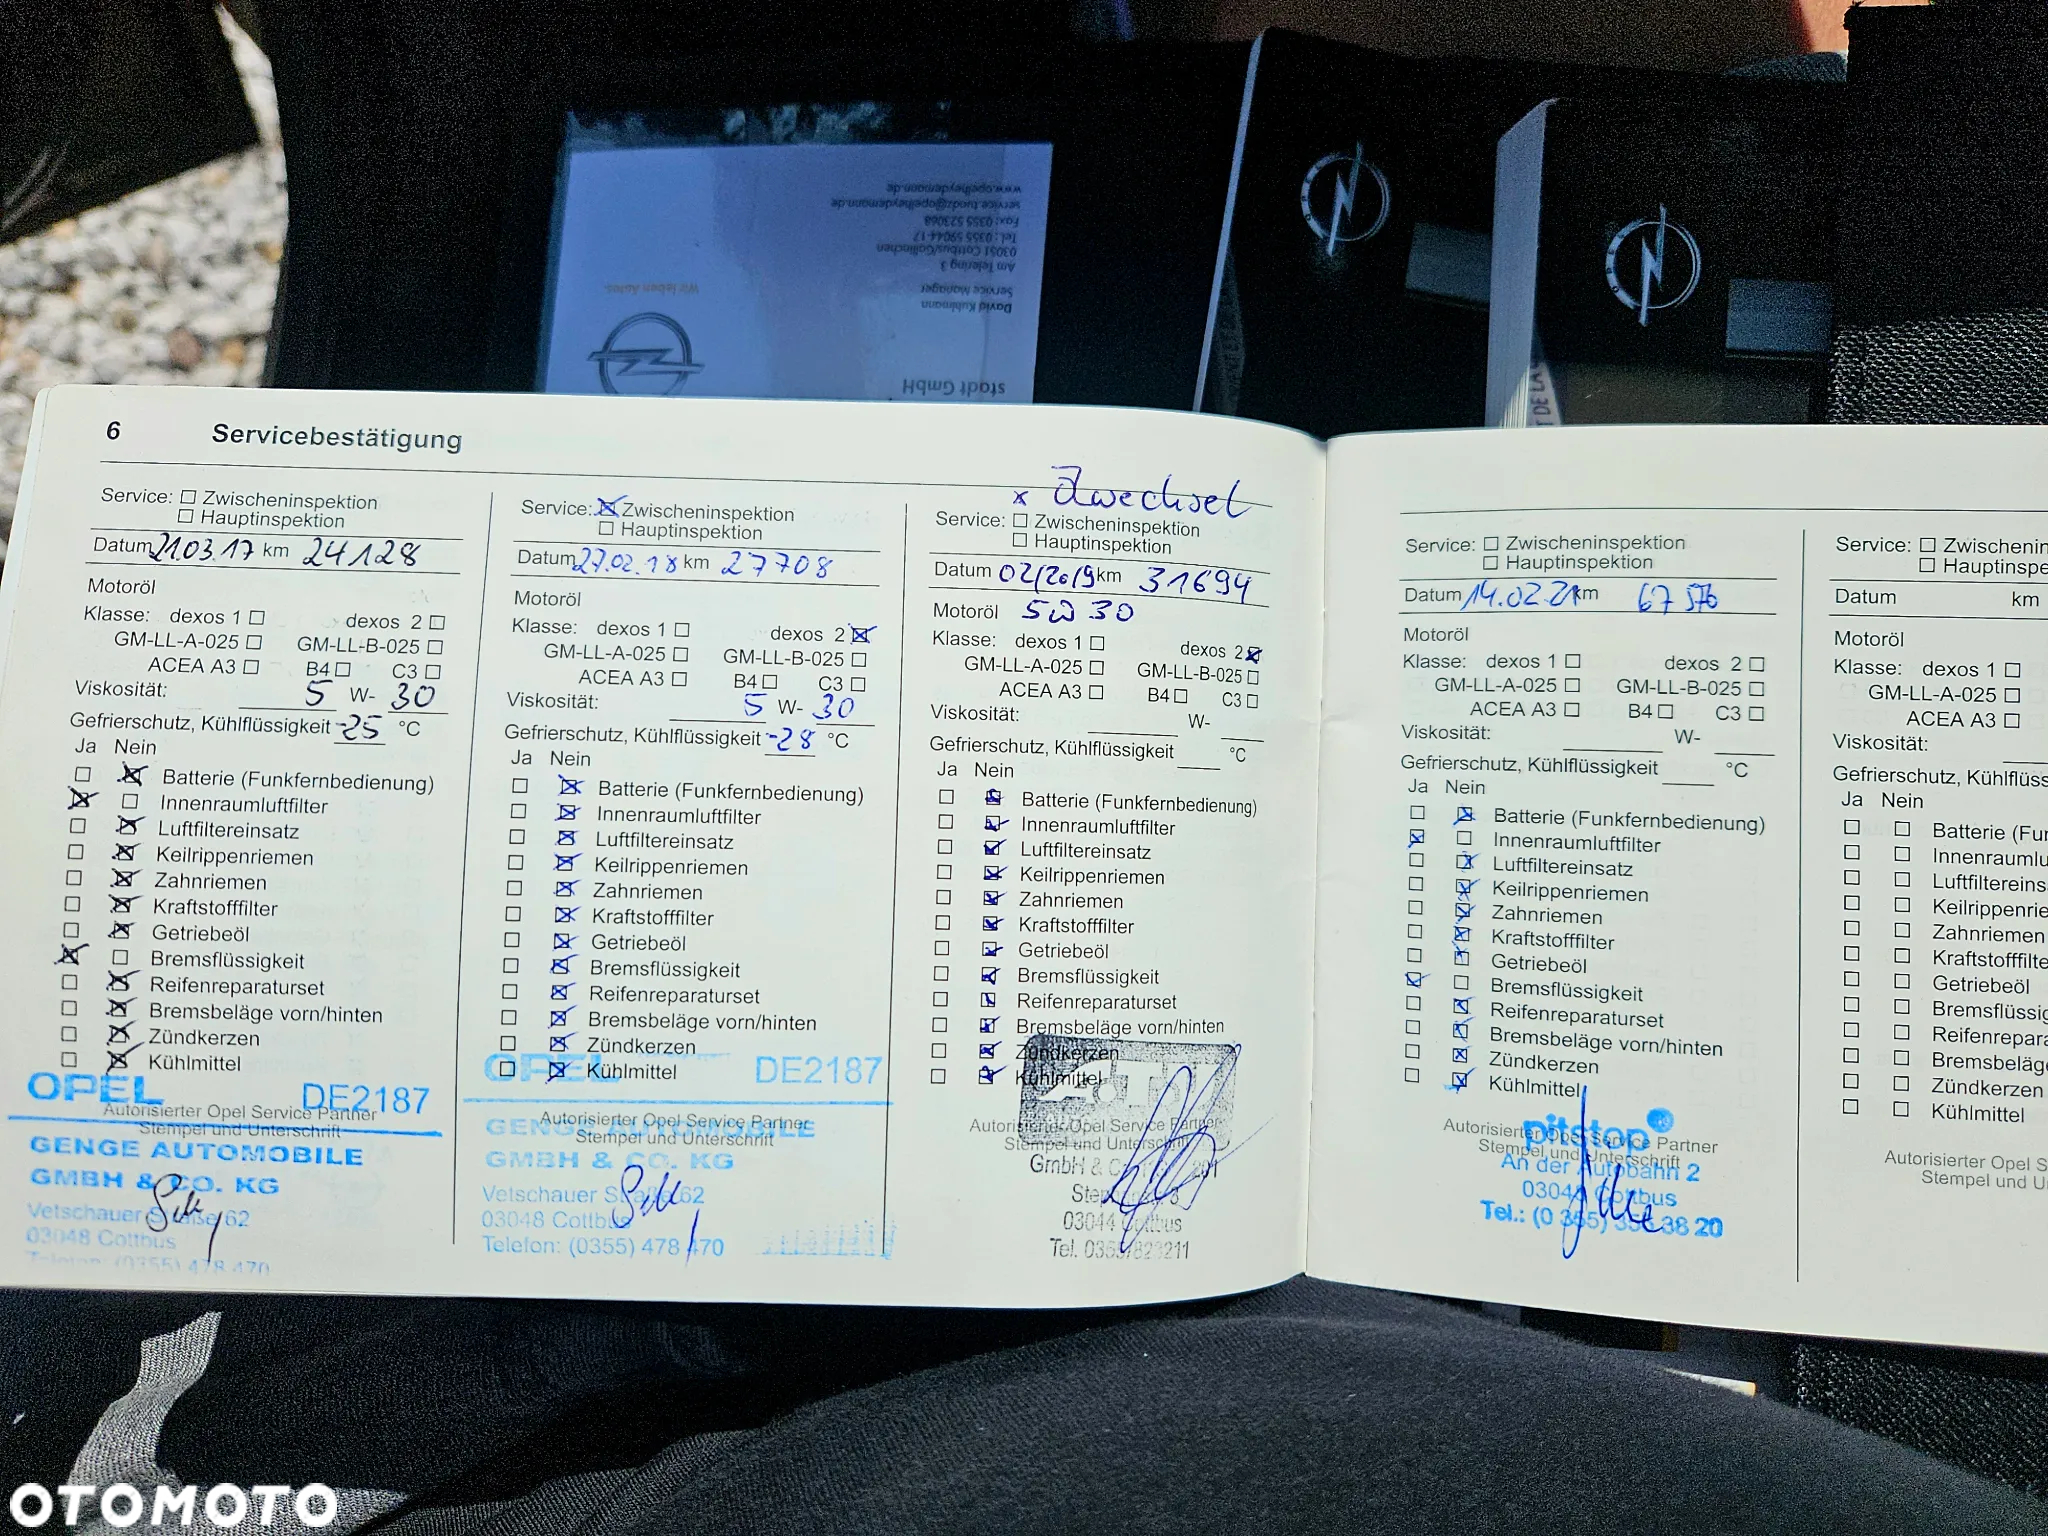 www.opelheydemann.de
service.tuodz@opelheydemann.de
Fax: 0355 523068
Tel.: 0355 59044-17
03051 Cottbus/Gallinchen
Am Telering 3
Service Manager
David Kuhlmann
Wir leben Autos.
stadt GmbH
OPEL
OPEL
6 Servicebestätigung
Service: Zwischeninspektion
Hauptinspektion
Datum 21.03.17 km 24128
Motoröl
Klasse: dexos 1 dexos 2
GM-LL-A-025 GM-LL-B-025
ACEA A3 B4 C3
Viskosität: 5 W- 30
Gefrierschutz, Kühlflüssigkeit -25 °C
Ja Nein
Batterie (Funkfernbedienung)
Innenraumluftfilter
Luftfiltereinsatz
Keilrippenriemen
Zahnriemen
Kraftstofffilter
Getriebeöl
Bremsflüssigkeit
Reifenreparaturset
Bremsbeläge vorn/hinten
Zündkerzen
Kühlmittel
OPEL DE2187
Autorisierter Opel Service Partner
Stempel und Unterschrift
GENGE AUTOMOBILE
GMBH & CO. KG
Vetschauer Straße 62
03048 Cottbus
Telefon: (0355) 478 470
Service: Zwischeninspektion
Hauptinspektion
Datum 27.02.18 km 27708
Motoröl
Klasse: dexos 1 dexos 2
GM-LL-A-025 GM-LL-B-025
ACEA A3 B4 C3
Viskosität: 5 W- 30
Gefrierschutz, Kühlflüssigkeit -28 °C
Ja Nein
Batterie (Funkfernbedienung)
Innenraumluftfilter
Luftfiltereinsatz
Keilrippenriemen
Zahnriemen
Kraftstofffilter
Getriebeöl
Bremsflüssigkeit
Reifenreparaturset
Bremsbeläge vorn/hinten
Zündkerzen
Kühlmittel
OPEL DE2187
Autorisierter Opel Service Partner
Stempel und Unterschrift
GENGE AUTOMOBILE
GMBH & CO. KG
Vetschauer Straße 62
03048 Cottbus
Telefon: (0355) 478 470
x Ölwechsel
Service: Zwischeninspektion
Hauptinspektion
Datum 02/2019 km 31694
Motoröl 5W30
Klasse: dexos 1 dexos 2
GM-LL-A-025 GM-LL-B-025
ACEA A3 B4 C3
Viskosität: W-
Gefrierschutz, Kühlflüssigkeit °C
Ja Nein
Batterie (Funkfernbedienung)
Innenraumluftfilter
Luftfiltereinsatz
Keilrippenriemen
Zahnriemen
Kraftstofffilter
Getriebeöl
Bremsflüssigkeit
Reifenreparaturset
Bremsbeläge vorn/hinten
Zündkerzen
Kühlmittel
Autorisierter Opel Service Partner
Stempel und Unterschrift
GmbH & Co.
03044 Cottbus
Tel. 0355/823211
Service: Zwischeninspektion
Hauptinspektion
Datum 14.02.21 km 67576
Motoröl
Klasse: dexos 1 dexos 2
GM-LL-A-025 GM-LL-B-025
ACEA A3 B4 C3
Viskosität: W-
Gefrierschutz, Kühlflüssigkeit °C
Ja Nein
Batterie (Funkfernbedienung)
Innenraumluftfilter
Luftfiltereinsatz
Keilrippenriemen
Zahnriemen
Kraftstofffilter
Getriebeöl
Bremsflüssigkeit
Reifenreparaturset
Bremsbeläge vorn/hinten
Zündkerzen
Kühlmittel
pitstop
Autorisierter Opel Service Partner
Stempel und Unterschrift
An der Autobahn 2
03048 Cottbus
Tel.: (0 355) 356 38 20
Service: Zwischenin
Hauptinspe
Datum km
Motoröl
Klasse: dexos 1
GM-LL-A-025
ACEA A3
Viskosität:
Gefrierschutz, Kühlflüss
Ja Nein
Batterie (Fu
Innenraumlu
Luftfiltereins
Keilrippenrie
Zahnriemen
Kraftstofffilte
Getriebeöl
Bremsflüssig
Reifenrepara
Bremsbeläge
Zündkerzen
Kühlmittel
Autorisierter Opel S
Stempel und U
OTOMOTO